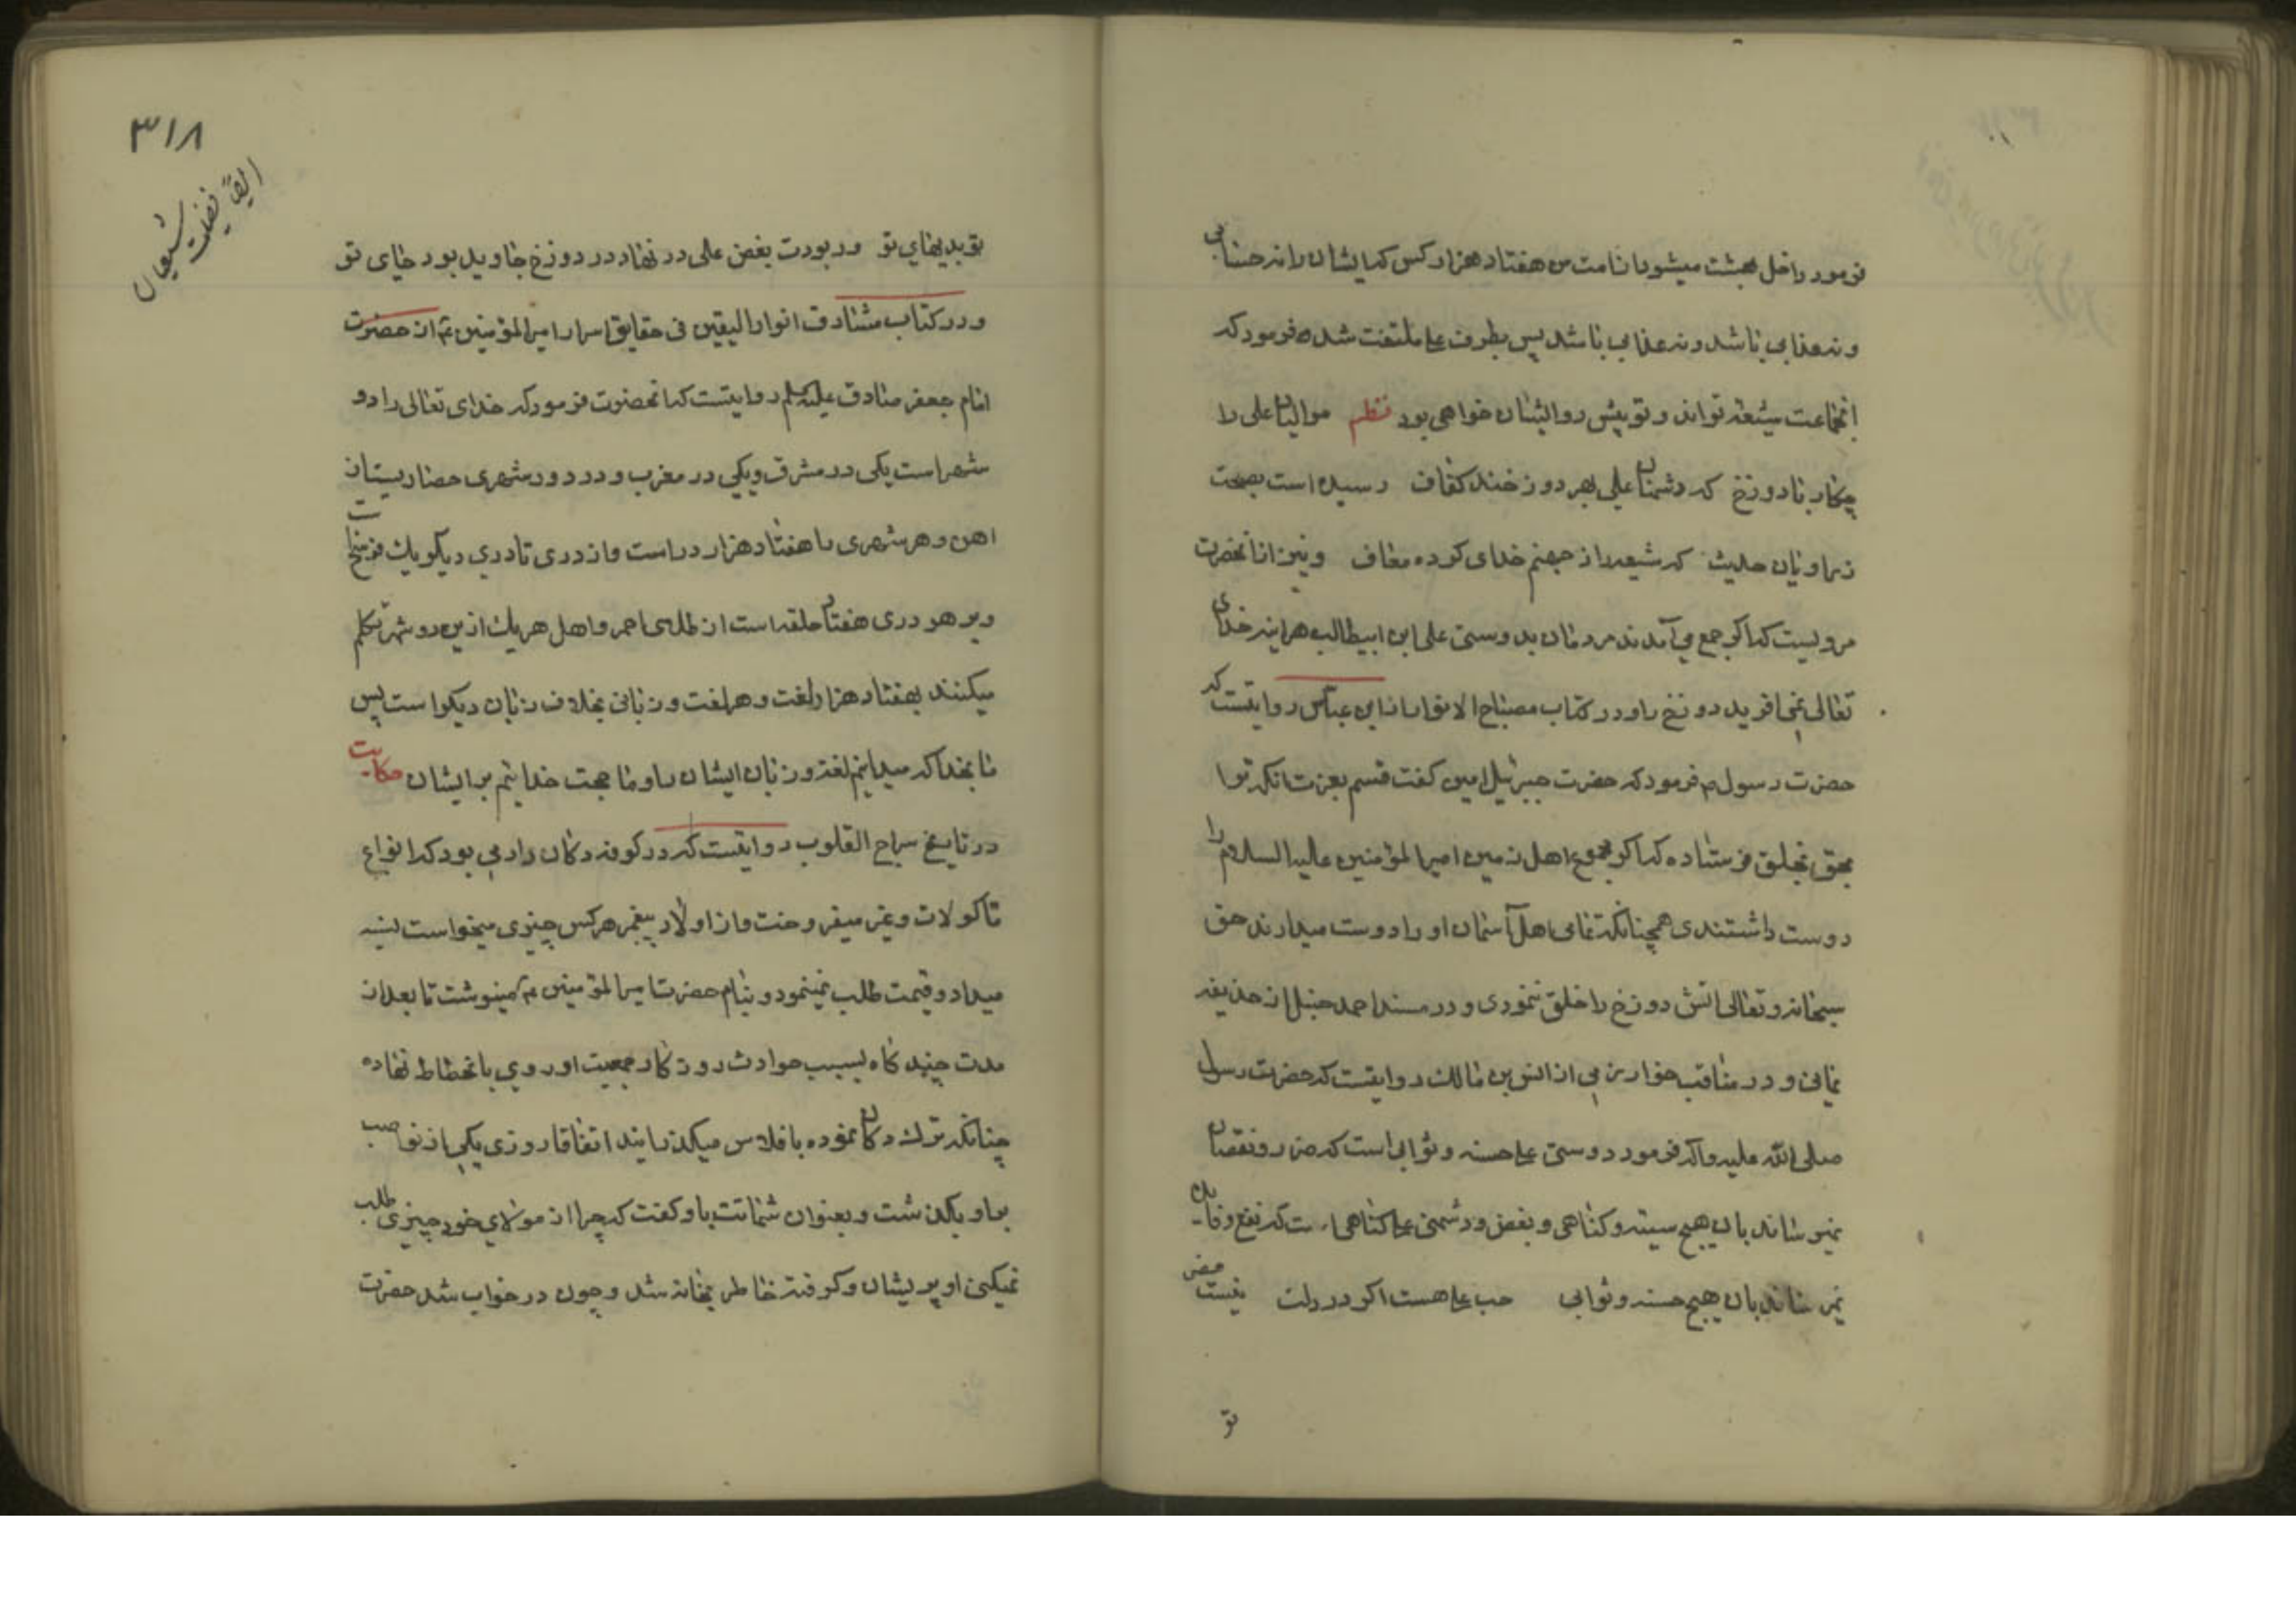 فرمود داخل بهشت میشود از امت من هفتاد هزار کس که ایشان را نه حسابی
و نه عذابی باشد و نه عذابی باشد پس بطرف علی ملتفت شده فرمود که
انجماعت شیعه تواند و تو پیش رو ایشان خواهی بود نظم موالیان علی را
چکار با دوزخ که دشمنان علی بهر دوزخند کفاف رسیده است بصحت
ز راویان حدیث که شیعه را ز جهنم خدای کرده معاف و نیز از انحضرت
مرویست که اگر جمع می آمدند مردمان بدوستی علی ابن ابیطالب هراینه خدای
تعالی نمی افرید دوزخ را و در کتاب مصباح الانوار از ابن عباس روایتست که
حضرت رسول م فرمود که حضرت جبرئیل امین کفت قسم بعزت انکه ترا
بحق بخلق فرستاده که اکر مجموع اهل زمین امیر المؤمنین علیه السلام را
دوست داشتندی همچنانکه تمامی اهل آسمان او را دوست میدارند حق
سبحانه و تعالی اتش دوزخ را خلق ننمودی و در مسند احمد حنبل از حذیفه
یمانی و در مناقب خوارزمی از انس بن مالک روایتست که حضرت رسول
صلی الله علیه و اله فرمود دوستی علی حسنه و ثوابی است که ضرر و نقصان
نمیرساند بان هیچ سیئه و کناهی و بغض و دشمنی علی کناهی است که نفع و فایده
نمیرساند بان هیچ حسنه و ثوابی حب علی هست اکر در دلت نیست مضر
تو
٣١٨
ایضاً فضیلت شیعیان
تو بدیهای تو ور بودت بغض علی در نهاد در دوزخ جاوید بود جای تو
و در کتاب مشارق انوار الیقین فی حقایق اسرار امیر المؤمنین ع از حضرت
امام جعفر صادق علیه السلم روایتست که انحضرت فرمود که خدای تعالی را دو
شهر است یکی در مشرق و یکی در مغرب و در دور شهری حصاریست از
اهن و هر شهری را هفتاد هزار در است و از دری تا دری دیکر یک فرسخ است
و بر هر دری هفتاد حلقه است از طلای احمر و اهل هر یک از این دو شهر تکلم
میکنند بهفتاد هزار لغت و هر لغت و زبانی بخلاف زبان دیکر است پس
ما بخدا که میدانیم لغت و زبان ایشان را و ما حجت خدایئم بر ایشان حکایت
در تاریخ سراج القلوب روایتست که در کوفه دکان داری بود که انواع
ماکولات و غیر میفروخت و از اولاد پیغمبر هر کس چیزی میخواست نسیه
میداد و قیمت طلب نمینمود و بنام حضرت امیر المؤمنین ع مینوشت تا بعد از
مدت چند کاه بسبب حوادث روزکار جمعیت او روی بانحطاط نهاده
چنانکه ترک دکان نموده بافلاس میکذرانید اتفاقا روزی یکی از نواصب
بر او بکذشت و بعنوان شماتت باو کفت که چرا از مولای خود چیزی طلب
نمیکنی او پریشان و کرفته خاطر بخانه شد و چون در خواب شد حضرت